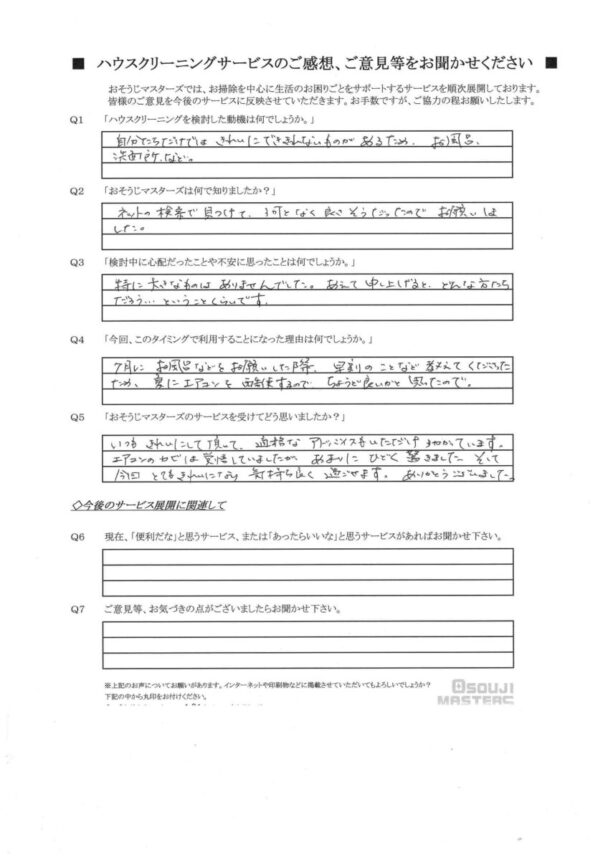 ■ ハウスクリーニングサービスのご感想、ご意見等をお聞かせください ■
おそうじマスターズでは、お掃除を中心に生活のお困りごとをサポートするサービスを順次展開しております。
皆様のご意見を今後のサービスに反映させていただきます。お手数ですが、ご協力の程お願いしたします。
Q1 「ハウスクリーニングを検討した動機は何でしょうか。」
自分たちだけでは きれいにでききれないものが あるため、 お風呂、
洗面所など。
Q2 「おそうじマスターズは何で知りましたか？」
ネットの検索で見つけて、 何となく良さそうだったので お願いしま
した。
Q3 「検討中に心配だったことや不安に思ったことは何でしょうか。」
特に大きなものは ありませんでした。 あえて 申し上げると、 どんな方たち
だろう… ということくらいです。
Q4 「今回、このタイミングで利用することになった理由は何でしょうか。」
7月に お風呂などを お願いした際、 早割のことなど 教えてくださった
ため、 夏に エアコンを 使するので ちょうど良いかと 思ったので。
Q5 「おそうじマスターズのサービスを受けてどう思いましたか？」
いつも きれいにして頂いて、 適格な アドバイスをいただけ 助かっています。
エアコンのカビは覚悟していましたが、 あまりに ひどく 驚きました。 そして
今回 とてもきれいになり 気持ち良く 過ごせます。 ありがとうございました。
◇今後のサービス展開に関連して
Q6 現在、「便利だな」と思うサービス、または「あったらいいな」と思うサービスがあればお聞かせ下さい。
Q7 ご意見等、お気づきの点がございましたらお聞かせ下さい。
※上記のお声についてお願いがあります。インターネットや印刷物などに掲載させていただいてもよろしいでしょうか？
下記の中から丸印をお付けください。
OSOUJI
MASTERS